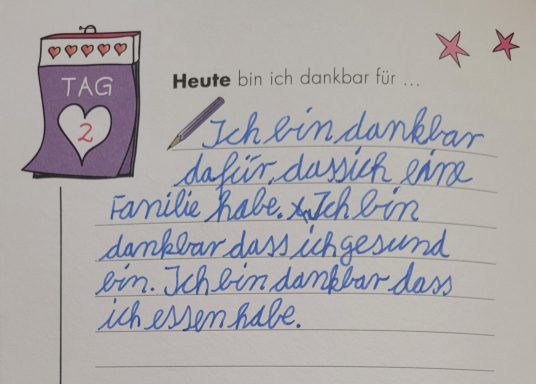 TAG
2
Heute bin ich dankbar für ...
Ich bin dankbar
dafür, dass ich eine
Familie habe. Ich bin
dankbar dass ich gesund
bin. Ich bin dankbar dass
ich essen habe.